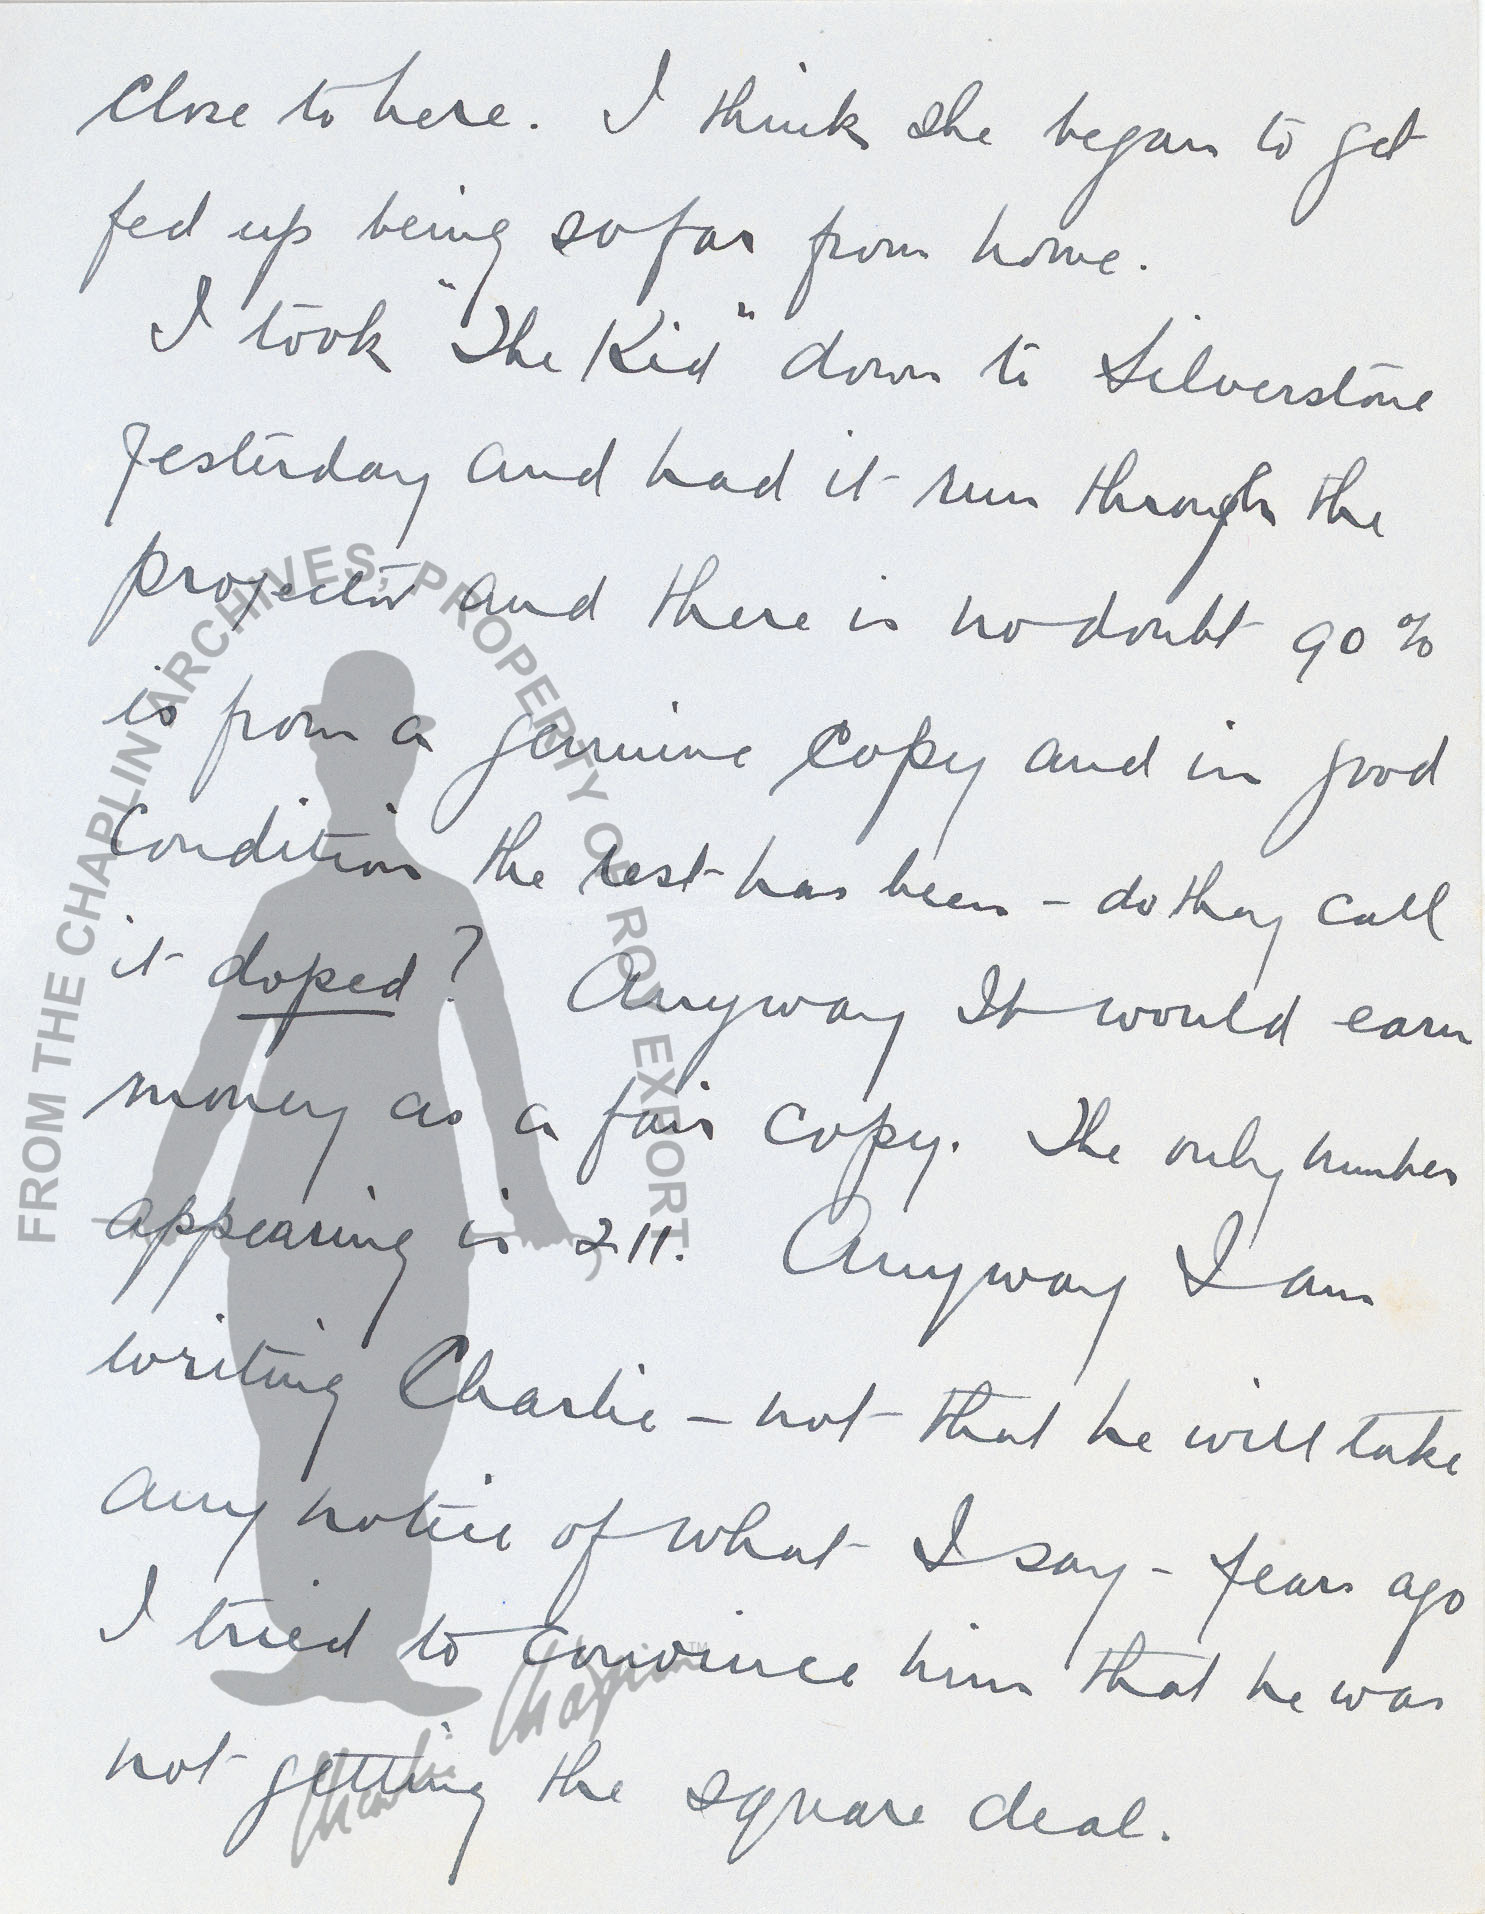 close to here. I think she began to get
fed up being so far from home.
I took "The Kid" down to Silverstone
yesterday and had it run through the
projector and there is no doubt 90%
is from a genuine copy and in good
condition the rest has been – do they call
it doped? Anyway It would earn
money as a fair copy. The only number
appearing is 211. Anyway I am
writing Charlie – not that he will take
any notice of what I say – years ago
I tried to convince him that he was
not getting the square deal.
FROM THE CHAPLIN ARCHIVES, PROPERTY OF ROY EXPORT
Charlie Chaplin™